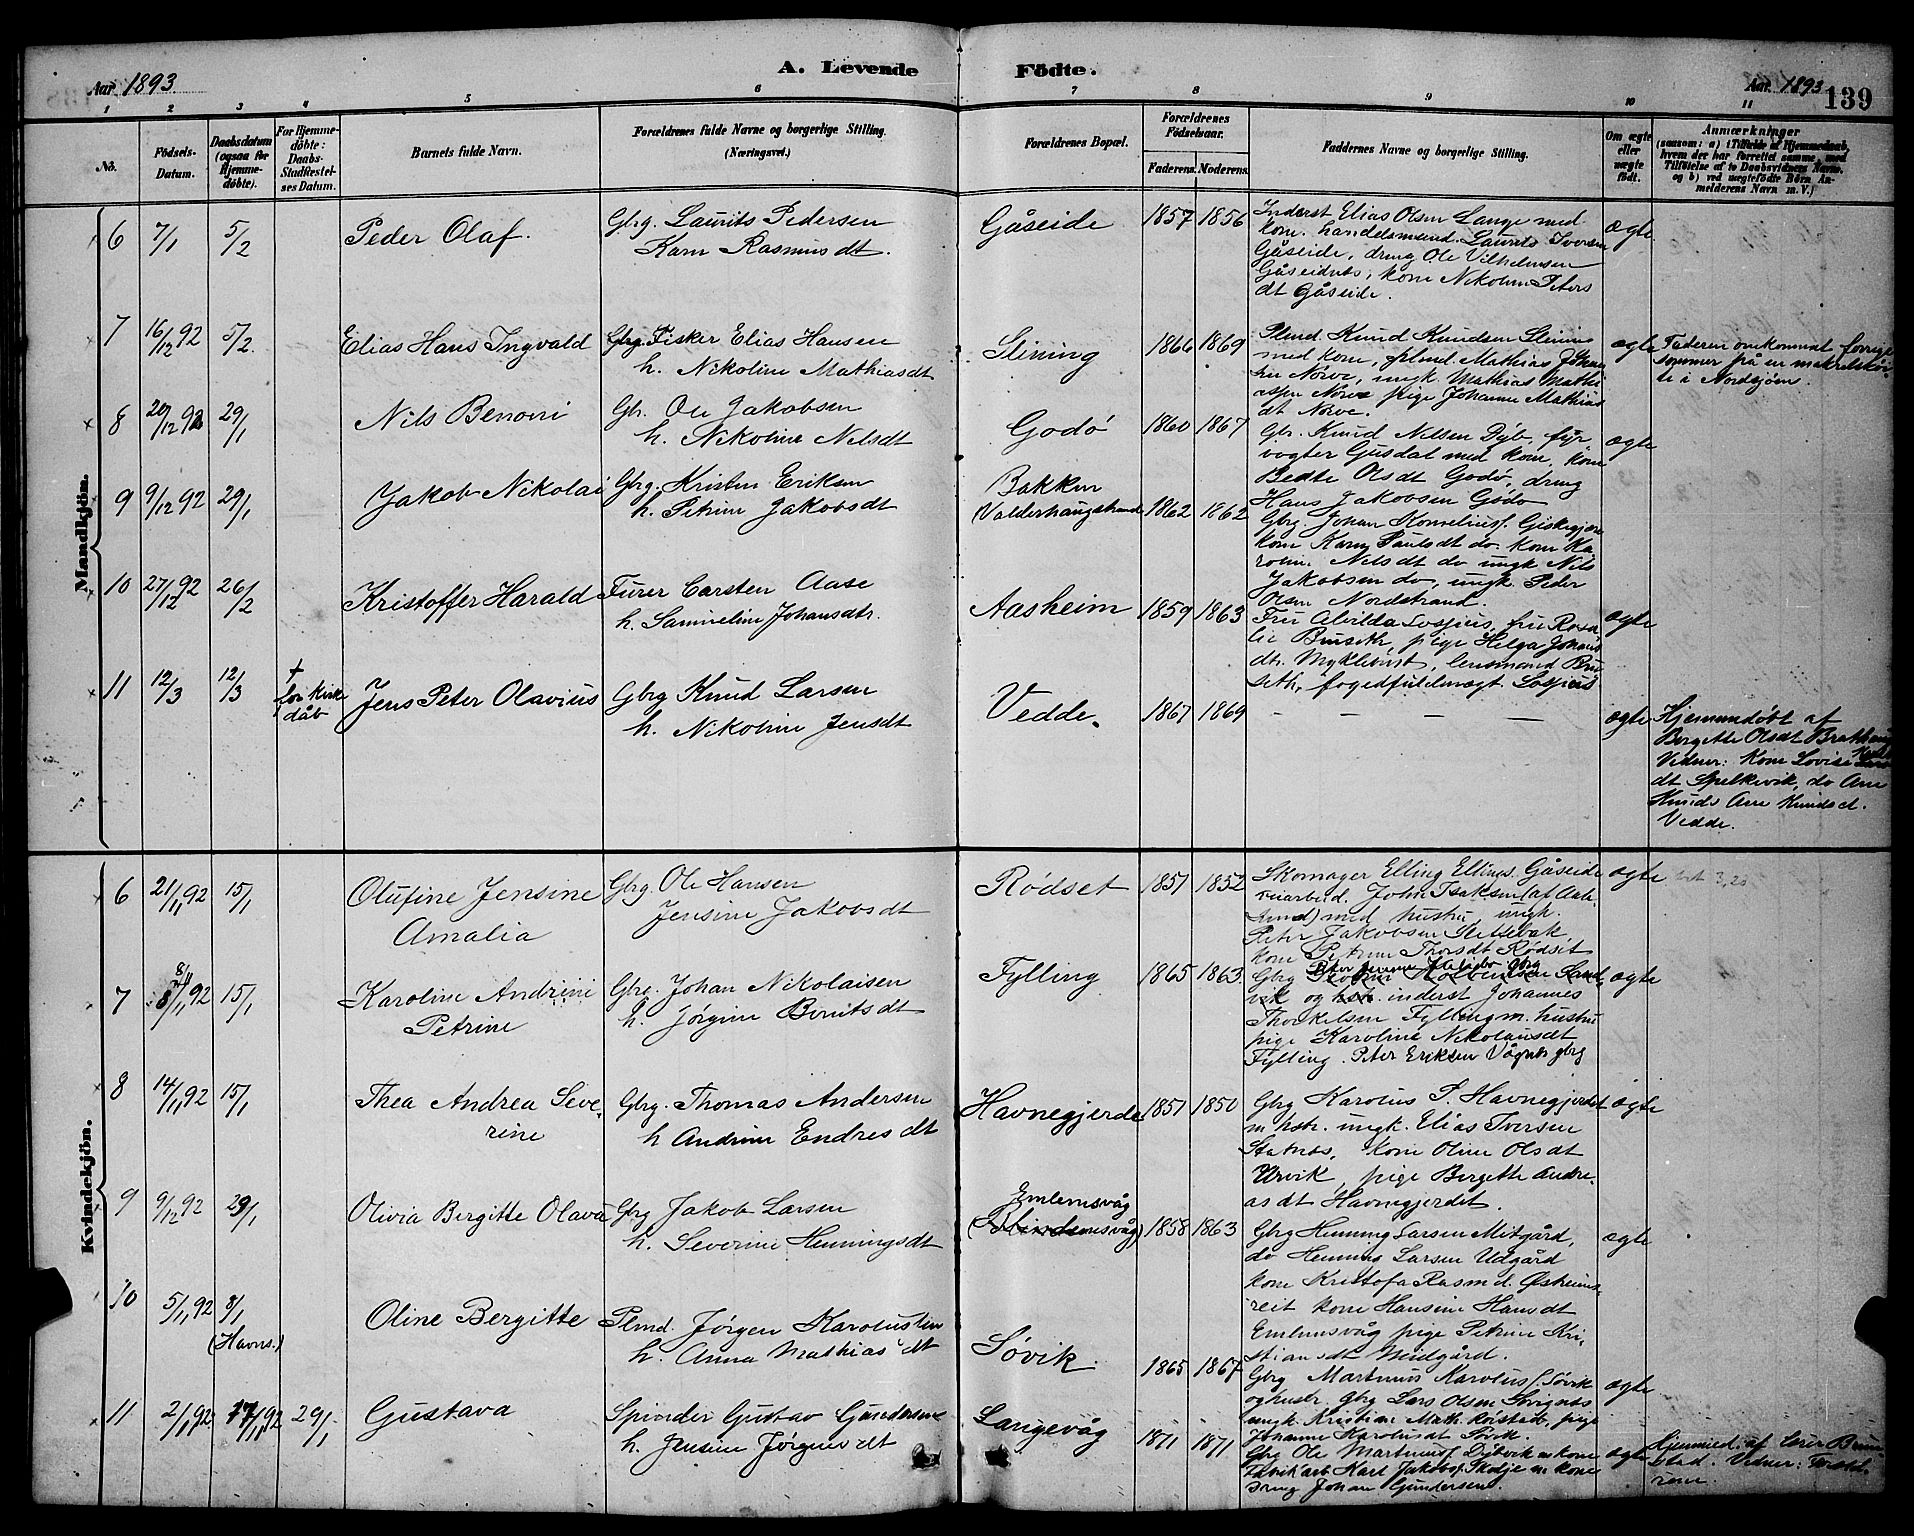 Aar 1893
A. Levende Födte.
Aar 1893
139
1 2 3 4 5 6 7 8 9 10 11
No.
Födsels-Datum.
Daabsdatum (ogsaa for Hjemme-döbte).
For Hjemme-döbte: Daabs-Stadfæstel-ses Datum.
Barnets fulde Navn.
Forældrenes fulde Navne og borgerlige Stilling.
(Næringsvei.)
Forældrenes Bopæl.
Forældrenes Födselsaar.
Faderens. Moderens.
Faddernes Navne og borgerlige Stilling.
Om ægte eller uægte födt.
Anmærkninger
(saasom: a) i Tilfælde af Hjemmedaab,
hvem der har forrettet samme, med
Tilföielse af to Daabsvidners Navne,
og b) ved uægtefödte Börn An-
melderens Navn m. V.)
Mandkjön.
6 7/1 5/2 Peder Olaf. Gbrg. Laurits Pedersen
Karn Rasmusdt.
Gåseide 1857 1856
Inderst Elias Olsen Lange med
kone. handelsmand. Laurits Iversen
Gåseide, dreng Ole Vilhelmsen
Gåseidnes, kone Nikoline Peters
dt Gåseide.
ægte
7 16/12 92 5/2. Elias Hans Ingvald Gbrg. Fisker Elias Hansen
h. Nikoline Mathiasdt
Slining 1866 1869
Plmd. Knud Knudsen Slining
med kone, plmd. Mathias
Nørve, ungk. Mathias Mathi
asen Nørve pige Johanne Mathias
dt Nørve.
ægte
Faderen omkommet forrige
sommer på en makrelskøi
te i Nordsjøen.
8 20/12 92 29/1 Nils Benoni Gbr. Ole Jakobsen
h. Nikoline Nilsdt
Godø 1860 1867
Gbr. Knud Nilsen Dyb, fyr
vogter Gusdal med kone, kone
Bedte Olsdt Godø, dreng
Hans Jakobsen Godø
ægte
9 9/12 92 29/1 Jakob Nikolai Gbrg. Kristen Eriksen
h. Petrine Jakobsdt
Bakken
(Valderhaugstrand 1862 1862
Gbrg. Johan Kornelius. Giskegjerde
kone Karn Paulsdt do. kone Ka
roline Nilsdt do ungk Nils
Jakobsen do, ungk. Peder
Olsen Nordstrand.
10 27/12 92 26/2 Kristoffer Harald Furer Carsten Aase
h. Samueline Johansdtr.
Aasheim 1859 1863
Fru Alvilda Lossius, fru Rosa
lie Buseth, pige Helga Johans
dtr. Myklebust, lensmand Bu
seth, fogedfuldmægt. Lossius
ægte
11 12/3 12/3 †
for kirk
dåb
Jens Peter Olavius Gbrg Knud Larsen
h. Nikoline Jensdt
Vedde. 1867 1869 - - - - ægte
Hjemmedøbt af
Bergitte Olsdt Brathaug
Vidner: Kone Lovise
dt Spelkevik, do Ane
Knuds Ane Knudsdt.
Vedde.
Kvindekjön.
6 21/11 92 15/1 Olufine Jensine
Amalia
Gbrg. Ole Hansen
Jensine Jakobsdt
Rødset 1851 1852
Skomager Elling Ellings. Gåseide
veiarbeid. John Isaksen (af Aale
sund) med hustru, ungk.
Peter Jakobsen Slettebak,
kone Petrine Thorsdt Rødset
ægte
3,20
7 8/11 92 15/1 Karoline Andrine
Petrine
Gbrg. Johan Nikolaisen
h. Jørgine Berntsdt
Fylling 1865 1863
Gbrg Sand
vik og hstr. inderst Johannes
Thorkelsen Fylling m. hustru
pige Karoline Nikolausdt
Fylling. Peter Eriksen Vågnes gbrg
ægte
8 14/11 92 15/1 Thea Andrea Seve
rine
Gbrg. Thomas Andersen
h Andrine Endresdt
Havnegjerde 1851 1850
Gbrg Karolus P. Havnegjerdet
m hstr. ungk. Elias Iversen
Statnes, kone Oline Olsdt
Urvik, pige Bergitte Andre-
asdt Havnegjerdet.
ægte
9 9/12 92 29/1 Olivia Bergitte Olava Gbrg Jakob Larsen
h. Severine Henningsdt
Emlemsvåg
1858 1863
Gbrg Henning Larsen Mitgård,
do Henning Larsen Udgård
kone Kristofa Rasmd. Østrems
reit kone Hansine Hansdt
Emlemsvåg pige Petrine Kri
stiansdt Midgård.
ægte
10 5/11 92 8/1
(Havns.)
Oline Bergitte Plmd. Jørgen Karolusen
h. Anna Mathiasdt
Søvik. 1865 1867
Gbrg Martinus Karolus. Søvik
og hustr. Gbrg Lars Olsen Søvignes
ungk. Kristian Math. Roistad, pige
Johanne Karolusdt Søvik.
ægte
11 2/11 92 17/11 92 29/1 Gustava Spinder Gustav Gundersen
h. Jensine Jørgensdt
Langevåg 1871 1871
Gbrg Ole Martinus Djupvik m kone
Fabrikarb Karl Jakobs. Skodje m kone
dreng Johan Gundersen.
ægte
Hjemmed. af lærer Brun
stad. Vidner: